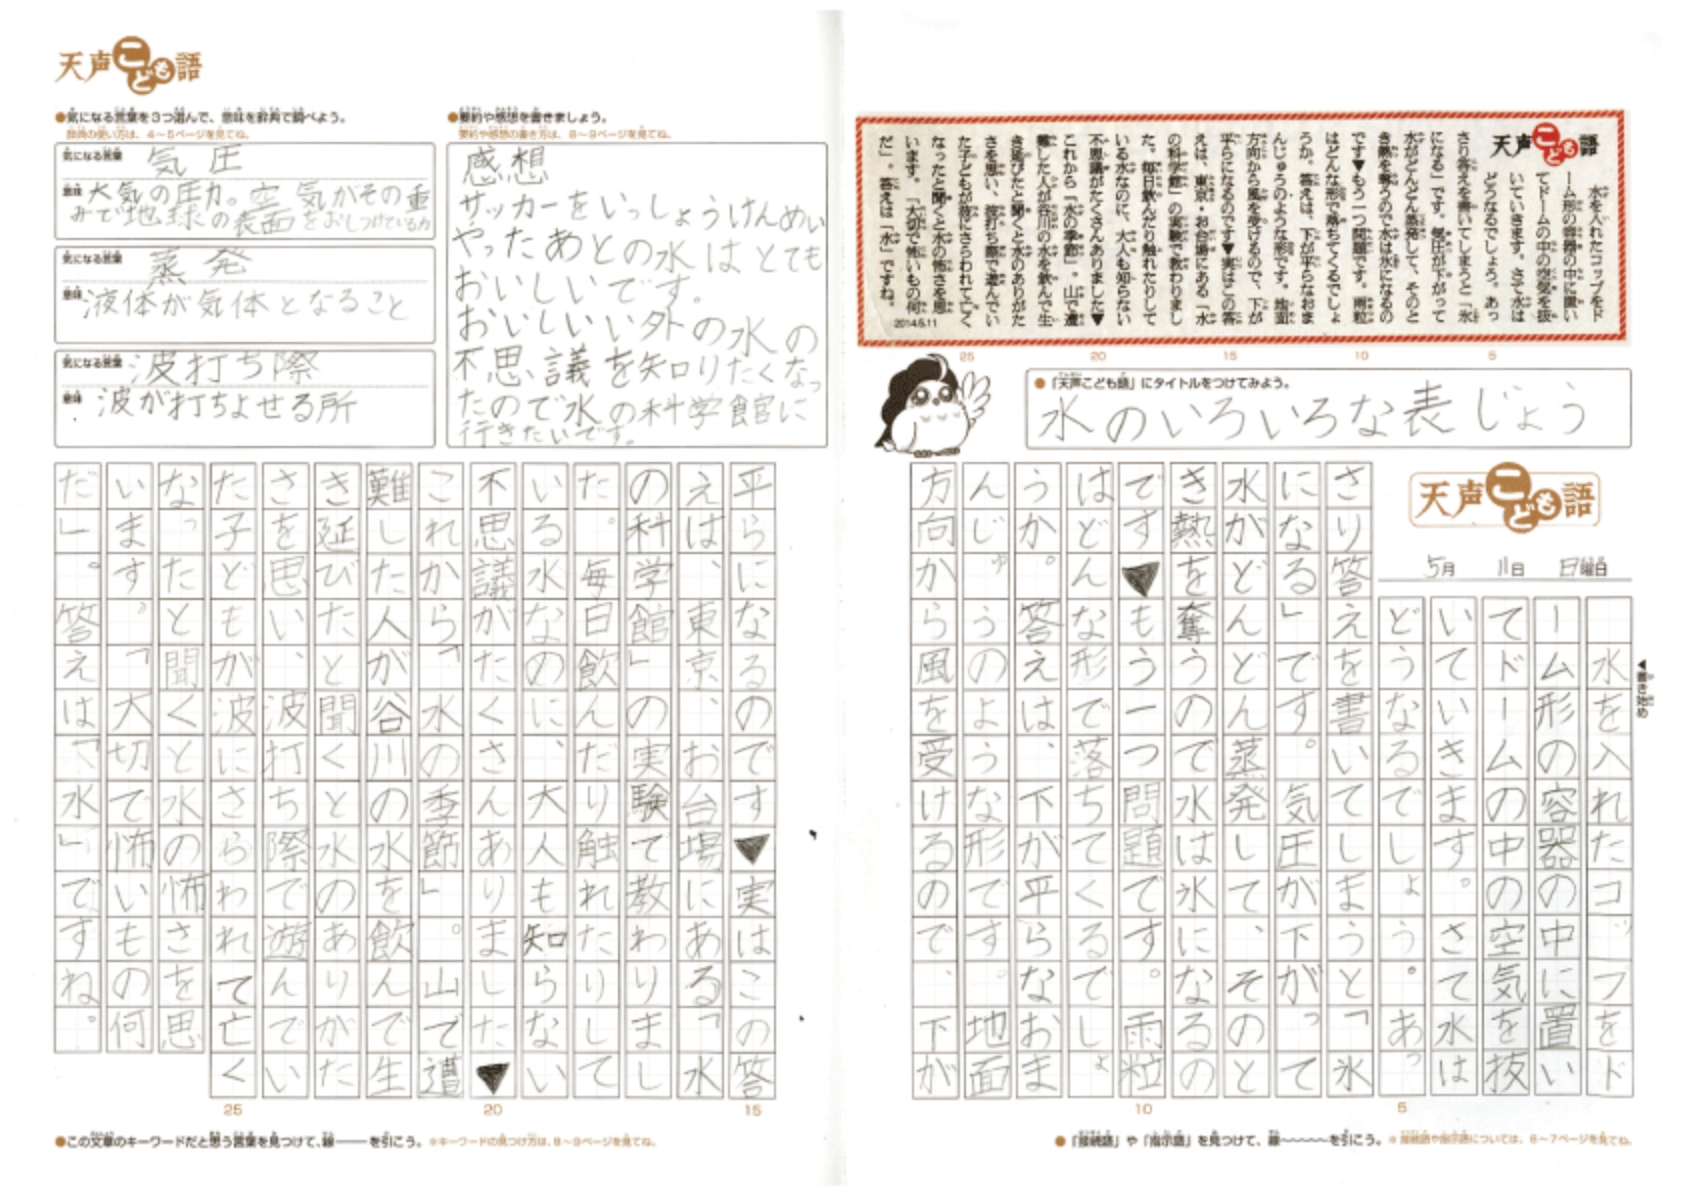 天声こども語
水を入れたコップをド
ーム形の容器の中に置い
てドームの中の空気を抜
いていきます。さて水は
どうなるでしょう。あっ
さり答えを書いてしまうと「氷
になる」です。気圧が下がって
水がどんどん蒸発して、そのと
き熱を奪うので水は氷になるの
です▼もう一つ問題です。雨粒
はどんな形で落ちてくるでしょ
うか。答えは、下が平らなおま
んじゅうのような形です。地面
方向から風を受けるので、下が
平らになるのです▼実はこの答
えは、東京・お台場にある「水
の科学館」の実験で教わりまし
た。毎日飲んだり触れたりして
いる水なのに、大人も知らない
不思議がたくさんありました▼
これから「水の季節」。山で遭
難した人が谷川の水を飲んで生
き延びたと聞くと水のありがた
さを思い、波打ち際で遊んでい
た子どもが波にさらわれて亡く
なったと聞くと水の怖さを思
います。「大切で怖いもの何
だ」。答えは「水」ですね。
2014.5.11
25 20 15 10 5
●「天声こども語」にタイトルをつけてみよう。
水のいろいろな表じょう
天声こども語
5月 11日 日曜日
◀書き始め
水を入れたコップをド
ーム形の容器の中に置い
てドームの中の空気を抜
いていきます。さて水は
どうなるでしょう。あっ
さり答えを書いてしまうと「氷
になる」です。気圧が下がって
水がどんどん蒸発して、そのと
き熱を奪うので水は氷になるの
です▼もう一つ問題です。雨粒
はどんな形で落ちてくるでしょ
うか。答えは、下が平らなおま
んじゅうのような形です。地面
方向から風を受けるので、下が
10 5
●「接続語」や「指示語」を見つけて、線〜〜〜〜を引こう。※接続語や指示語については、6〜7ページを見てね。
天声こども語
●気になる言葉を3つ選んで、意味を辞典で調べよう。
辞典の使い方は、4〜5ページを見てね。
気になる言葉 気圧
意味 大気の圧力。空気がその重
みで地球の表面をおしつけている力
気になる言葉 蒸発
意味 液体が気体となること
気になる言葉 波打ち際
意味 波が打ちよせる所
●要約や感想を書きましょう。
要約や感想の書き方は、8〜9ページを見てね。
感想
サッカーをいっしょうけんめい
やったあとの水はとても
おいしいです。
おいしいい外の水の
不思議を知りたくなっ
たので水の科学館に
行きたいです。
平らになるのです▼実はこの答
えは、東京、お台場にある「水
の科学館」の実験で教わりまし
た。毎日飲んだり触れたりして
いる水なのに、大人も知らない
不思議がたくさんありました▼
これから「水の季節」。山で遭
難した人が谷川の水を飲んで生
き延びたと聞くと水のありがた
さを思い、波打ち際で遊んでい
た子どもが波にさらわれて亡く
なったと聞くと水の怖さを思
います。「大切で怖いもの何
だ」。答えは「水」ですね。
25 20 15
●この文章のキーワードだと思う言葉を見つけて、線――を引こう。※キーワードの見つけ方は、8〜9ページを見てね。